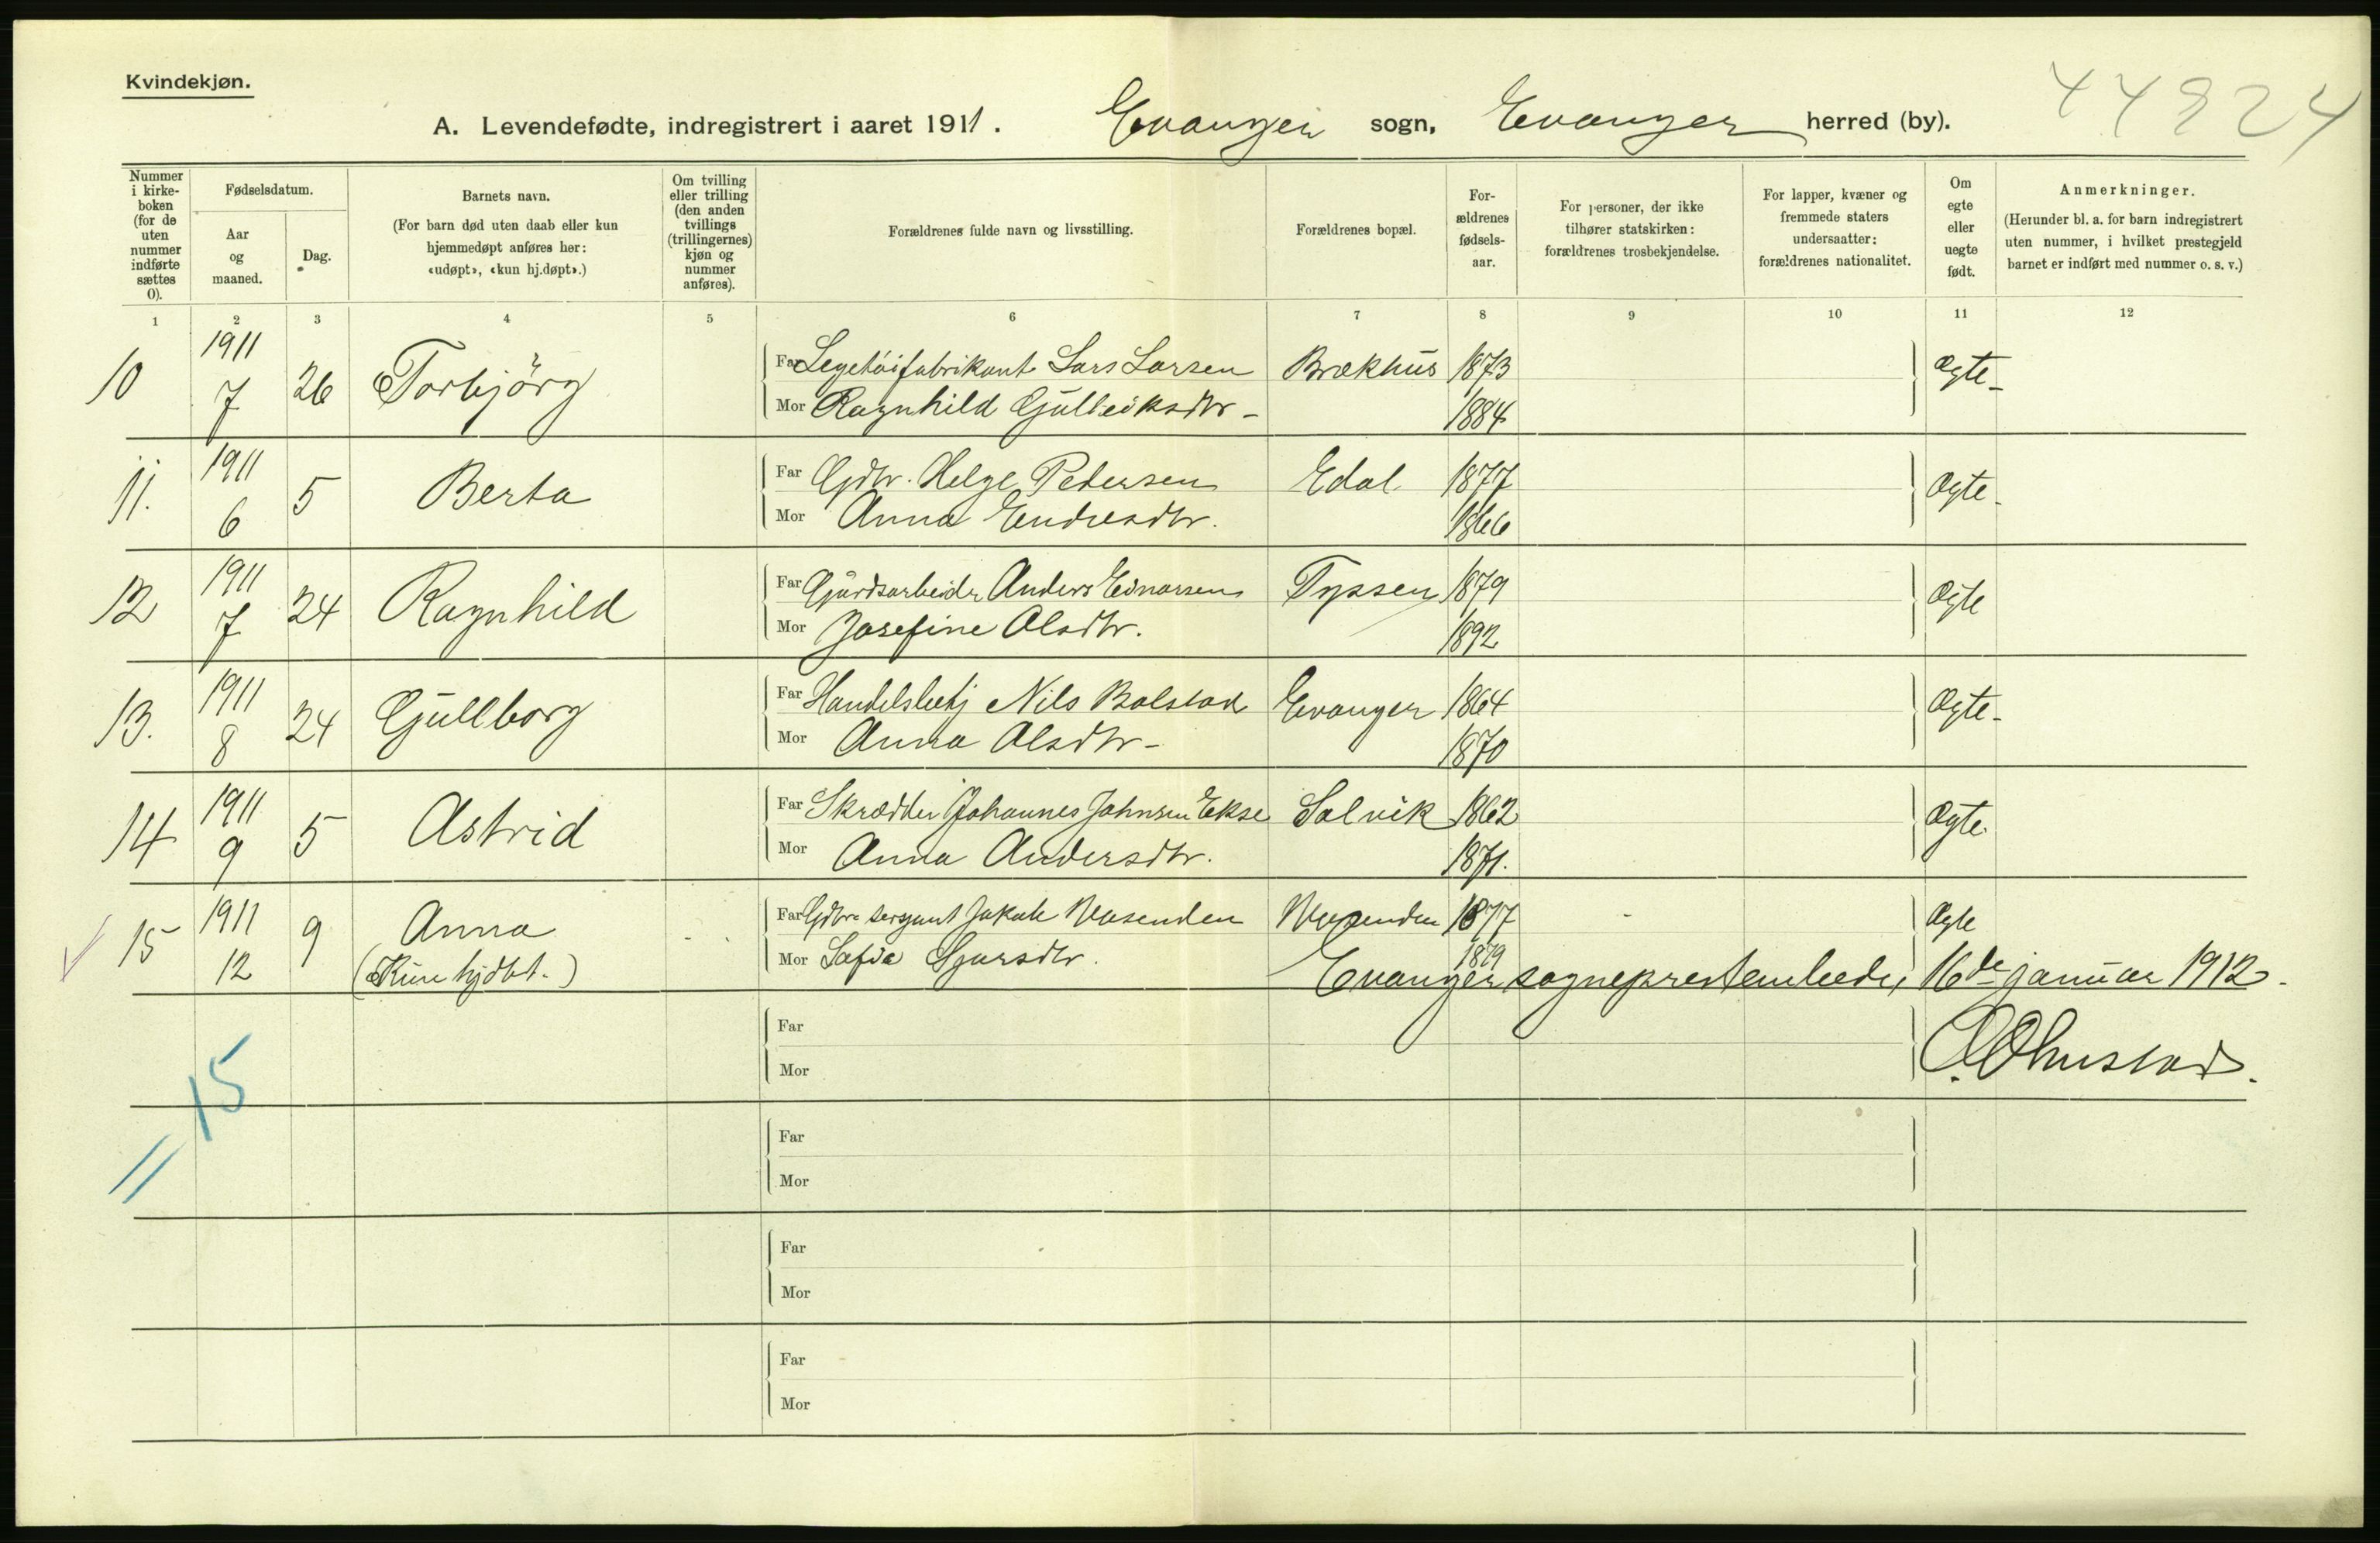 Kvindekjøn.
44824
A. Levendefødte, indregistrert i aaret 1911. Evanger sogn, Evanger herred (by).
Nummer i kirke-boken (for de uten nummer indførte sættes 0).
Fødselsdatum.
Aar og maaned.
Dag.
Barnets navn.
(For barn død uten daab eller kun hjemmedøpt anføres her: «udøpt», «kun hj.døpt».)
Om tvilling eller trilling (den anden tvillings (trillingernes) kjøn og nummer anføres).
Forældrenes fulde navn og livsstilling.
Forældrenes bopæl.
For-ældrenes fødsels-aar.
For personer, der ikke tilhører statskirken: forældrenes trosbekjendelse.
For lapper, kvæner og fremmede staters undersaatter: forældrenes nationalitet.
Om egte eller uegte født.
Anmerkninger.
(Herunder bl. a. for barn indregistrert uten nummer, i hvilket prestegjeld barnet er indført med nummer o. s. v.)
1 2 3 4 5 6 7 8 9 10 11 12
10 1911 7 26 Torbjörg Far Legetöifabrikant Lars Larsen Brækhus 1873 Ægte
Mor Ragnhild Gulleiksdtr 1884
11. 1911 6 5 Berta Far Gdbr. Helge Pedersen Edal 1877 Ægte
Mor Anna Endresdtr. 1866
12 1911 7 24 Ragnhild Far Gårdsarbeider Anders Einarsen Tyssen 1879 Ægte
Mor Josefine Olsdtr. 1892
13. 1911 8 24 Gullborg Far Handelsbetj Nils Bolstad Evanger 1864 Ægte
Mor Anna Olsdtr 1870
14 1911 9 5 Astrid Far Skrædder Johannes Johnsen Ekse Solvik 1862 Ægte
Mor Anna Andersdtr. 1871.
15 1911 12 9 Anna Far Gdbr sersjant Jakob Mosenden Mosenden 1877 Ægte
(Kun hjdbt.) Mor Sofia Sjursdtr. 1879
Evanger sogneprestembede, 16de januar 1912.
Far
Mor
15
Far
Mor
Far
Mor
Far
Mor